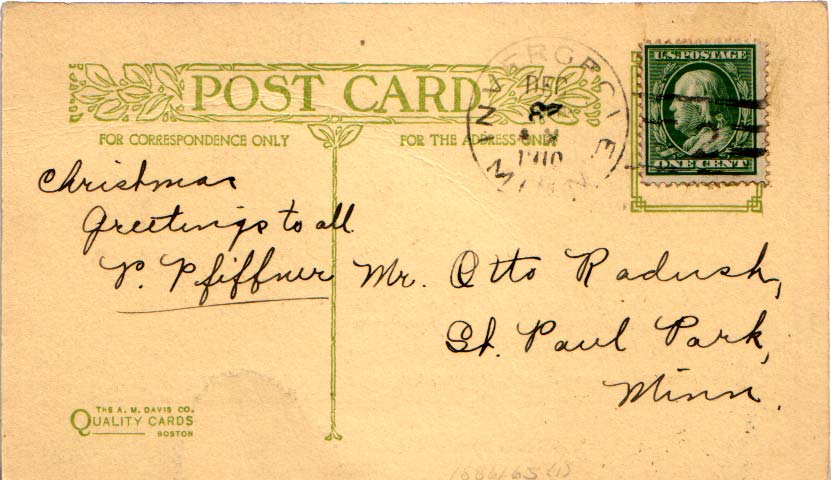 POST CARD
FOR CORRESPONDENCE ONLY
FOR THE ADDRESS ONLY
DEC
1910
MINN
U.S. POSTAGE
ONE CENT
Christmas
Greetings to all
P. Pfiffner
Mr. Otto Radush,
St. Paul Park,
Minn.
THE A. M. DAVIS CO.
QUALITY CARDS
BOSTON